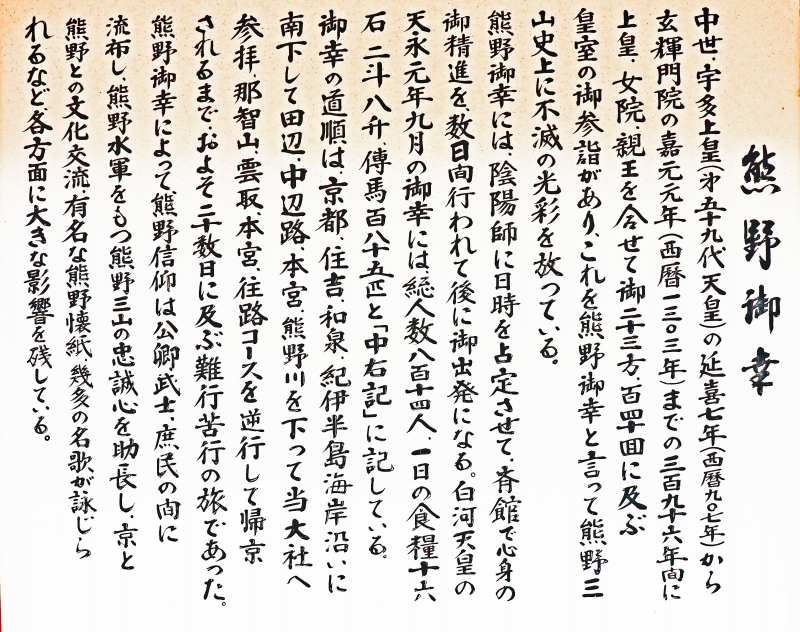 熊野御幸
中世、宇多上皇(第五十九代天皇)の延喜七年(西暦九〇七年)から
玄輝門院の嘉元元年(西暦一三〇三年)までの三百九十六年間に
上皇、女院、親王を合せて御二十三方、百四十回に及ぶ
皇室の御参詣があり、これを熊野御幸と言って熊野三
山史上に不滅の光彩を放っている。
熊野御幸には、陰陽師に日時を占定させて、斉館で心身の
御精進を、数日間行われて後に御出発になる。白河天皇の
天永元年九月の御幸には、総人数八百十四人、一日の食糧十六
石二斗八升、傳馬百八十五匹と「中右記」に記している。
御幸の道順は、京都、住吉、和泉、紀伊半島海岸沿いに
南下して田辺、中辺路、本宮、熊野川を下って当大社へ
参拝、那智山、雲取、本宮、往路コースを逆行して帰京
されるまで、およそ二十数日に及ぶ難行苦行の旅であった。
熊野御幸によって、熊野信仰は公卿武士、庶民の間に
流布し、熊野水軍をもつ熊野三山の忠誠心を助長し、京と
熊野との文化交流、有名な熊野懐紙、幾多の名歌が詠じら
れるなど、各方面に大きな影響を残している。